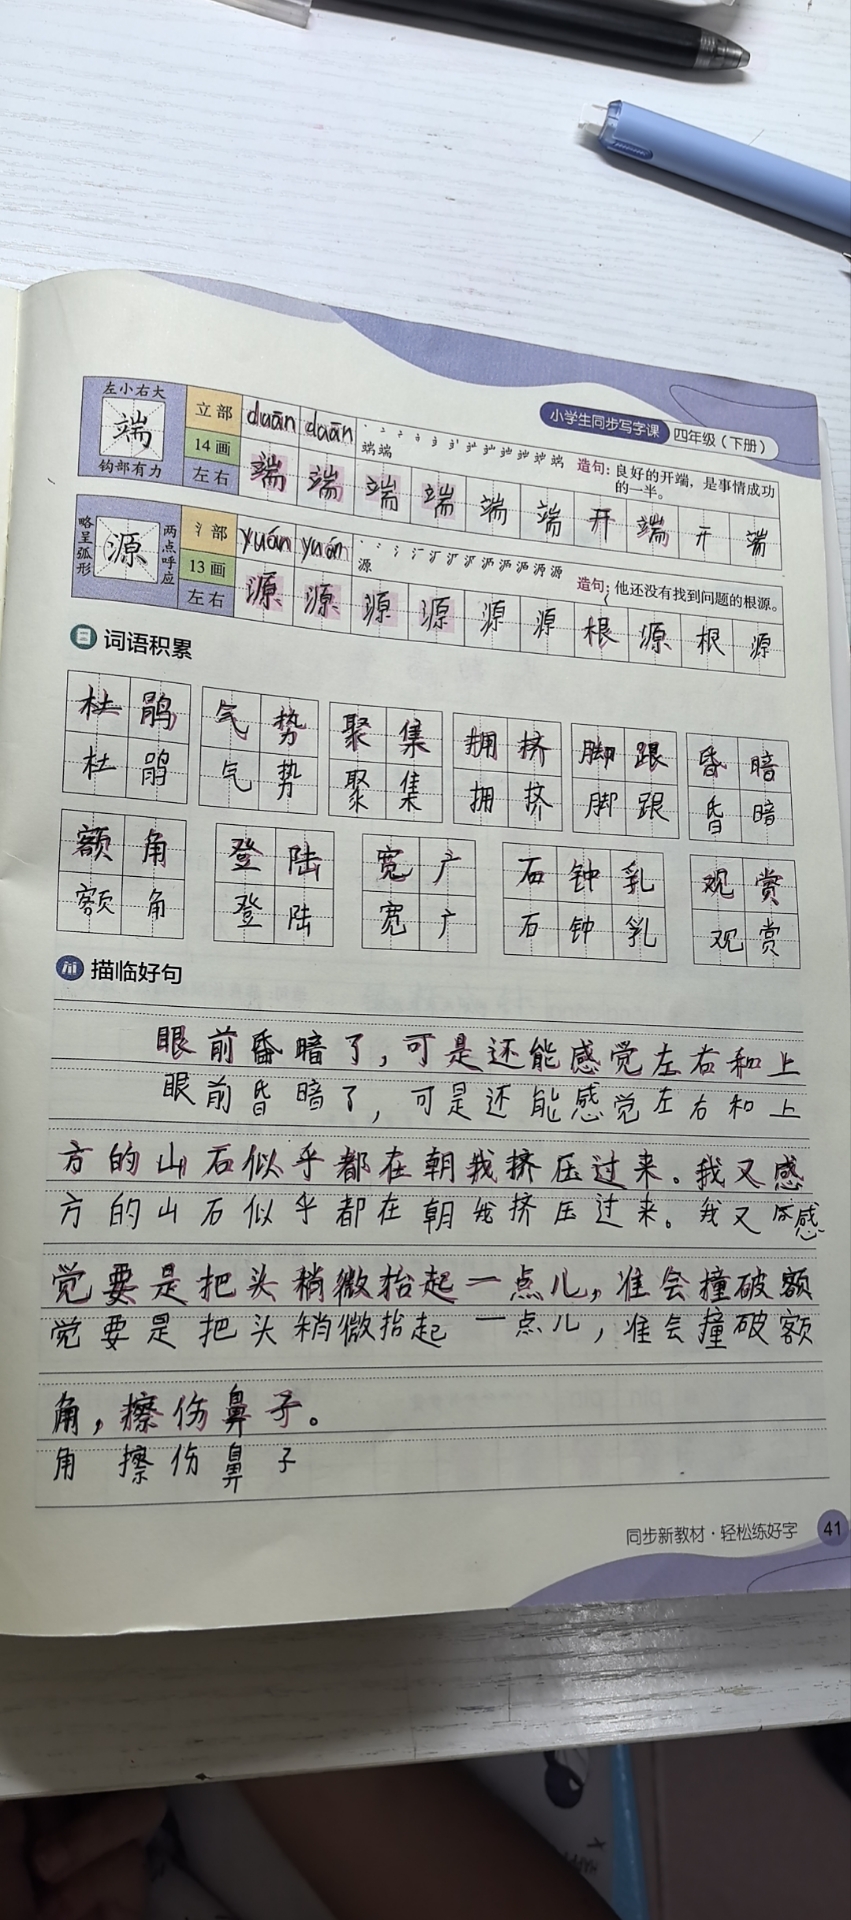 小学生同步写字课 四年级（下册）
左小右大
端
钩部有力
立部
14画
左右
duān duān
端端
造句：良好的开端，是事情成功
的一半。
端 端 端 端 端 端 开 端 开 端
略呈弧形
源
两点呼应
氵部
13画
左右
yuán yuán
源
造句：他还没有找到问题的根源。
源 源 源 源 源 源 根 源 根 源
日 词语积累
杜鹃 气势 聚集 拥挤 脚跟 昏暗
杜鹃 气势 聚集 拥挤 脚跟 昏暗
额角 登陆 宽广 石钟乳 观赏
额角 登陆 宽广 石钟乳 观赏
描临好句
眼前昏暗了，可是还能感觉左右和上
眼前昏暗了，可是还能感觉左右和上
方的山石似乎都在朝我挤压过来。我又感
方的山石似乎都在朝我挤压过来。我又感
觉要是把头稍微抬起一点儿，准会撞破额
觉要是把头稍微抬起一点儿，准会撞破额
角，擦伤鼻子。
角 擦伤鼻子
同步新教材·轻松练好字 41